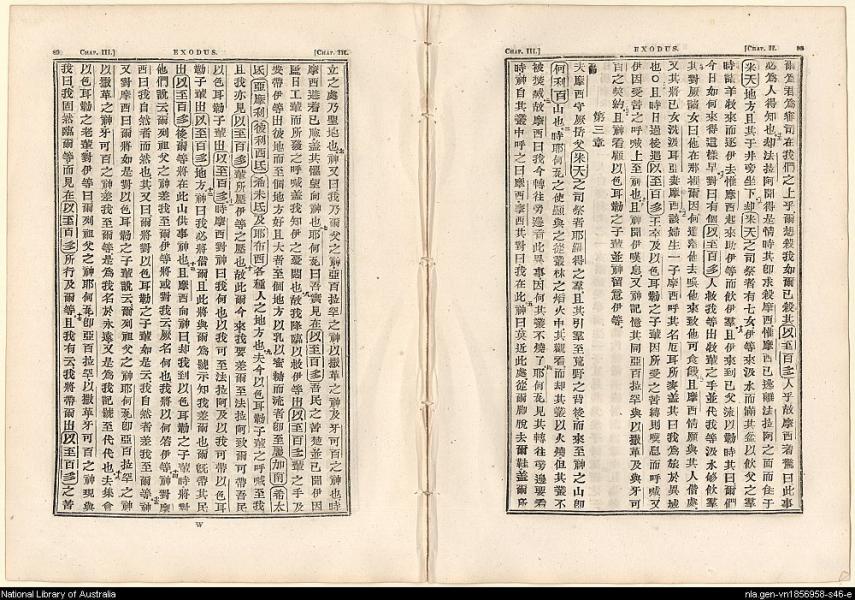 CHAP. III.] EXODUS. [CHAP. II. 88
爾為君為審司在我們之上乎爾想殺我如爾已殺其以至百多人乎故摩西着驚曰此事
必為人得知也却法拉阿聞得是情時其即求殺摩西惟摩西已逃離法拉阿之面而住于
米天地方且其于井旁坐下却米天之司祭者有七女伊等來汲水而滿其盆以飲父之羣
時該羊牧來而逐伊去惟摩西起來助伊等而飲伊羣且伊來到已父流以勒時其曰爾們
今日如何來得這樣早對曰有個以至百多人救我等出牧輩之手並代我等汲水够飲羣
其對厥諸女曰他在那裡爾因何遺離他去喚他來致他可食餐且摩西情願與其人偕處
又其將已女洗汲耳亞妻摩西該婦生一子摩西呼其名厄耳所麥蓋其曰我為旅於異域
也○且時日過後這以至百多王卒及以色耳勒之子輩因所受之苦縛則嘆息而呼喊又
伊因受苦之呼喊上至神也且神聞伊嘆息又神記憶其同亞百拉罕與以撒革及與牙可
百之契約且神看顧以色耳勒子輩並神留意伊等
第三章
夫摩西守厥岳父米天之司祭者耶羅得之羣且其引羣至寬野之背後而來至神之山即
何利百山也時耶何瓦之使顯與之從叢林之焰火中其觀看而却其叢以火燒但其叢不
被燒滅故摩西曰我今轉往旁邊看此異事因何其叢不燒了耶何瓦見其轉往旁邊要看
時神自其叢中呼之曰摩西摩西其對曰我在此神曰莫近此處從爾脚脫去爾鞋蓋爾所
89 CHAP. III.] EXODUS. [CHAP. III.
立之處乃聖地也神又曰我乃爾父之神亞百拉罕之神以撒革之神及牙可百之神也時
摩西遮着已臉蓋其懼望向神也耶何瓦曰吾實見在以至百多吾民之苦楚並已聞伊因
厥日工輩而所發之呼喊蓋我知伊之憂悶也故我降臨以救伊等出以至百多輩之手及
要帶伊等出彼地而至個地方好且大者至個地方以乳以蜜糖而流者即至厥加南希太
氏亞摩利彼利西氏希未氏及耶布西各種人之地方也夫今以色耳勒子輩之呼喊至我
且我亦見以至百多輩所厭伊等之壓也故此爾今來我要差爾至法拉阿致爾可帶吾民
以色耳勒子輩出以至百多時摩西對神曰我何也以我可至法拉阿及以我可帶以色耳
勒子輩出以至百多地方神曰我必將偕爾且此將與爾為號示知我差爾也爾旣帶其民
出以至百多後爾等將在此山供事神也且摩西向神曰却我到以色耳勒子輩時將對
他們說云爾列祖之神差我至爾伊等將或對我云厥名何也我將以何答伊等神對摩
西曰我自然者而然也其又曰爾將對以色耳勒子輩如是云我自然者差我至爾等神
又對摩西曰爾將如是對以色耳勒子輩說云爾列祖父之神耶何瓦即亞百拉罕之神
以撒革之神牙可百之神差我至爾等是為我名於永遠又是為我記號至代代也去集會
以色耳勒之老輩對伊等曰爾列祖父之神耶何瓦即亞百拉罕以撒革牙可百之神現與
我曰我固然臨爾等而見在以至百多所行及爾等且我有云我將帶爾出以至百多之苦
W
National Library of Australia
nla.gen-vn1856958-s46-e